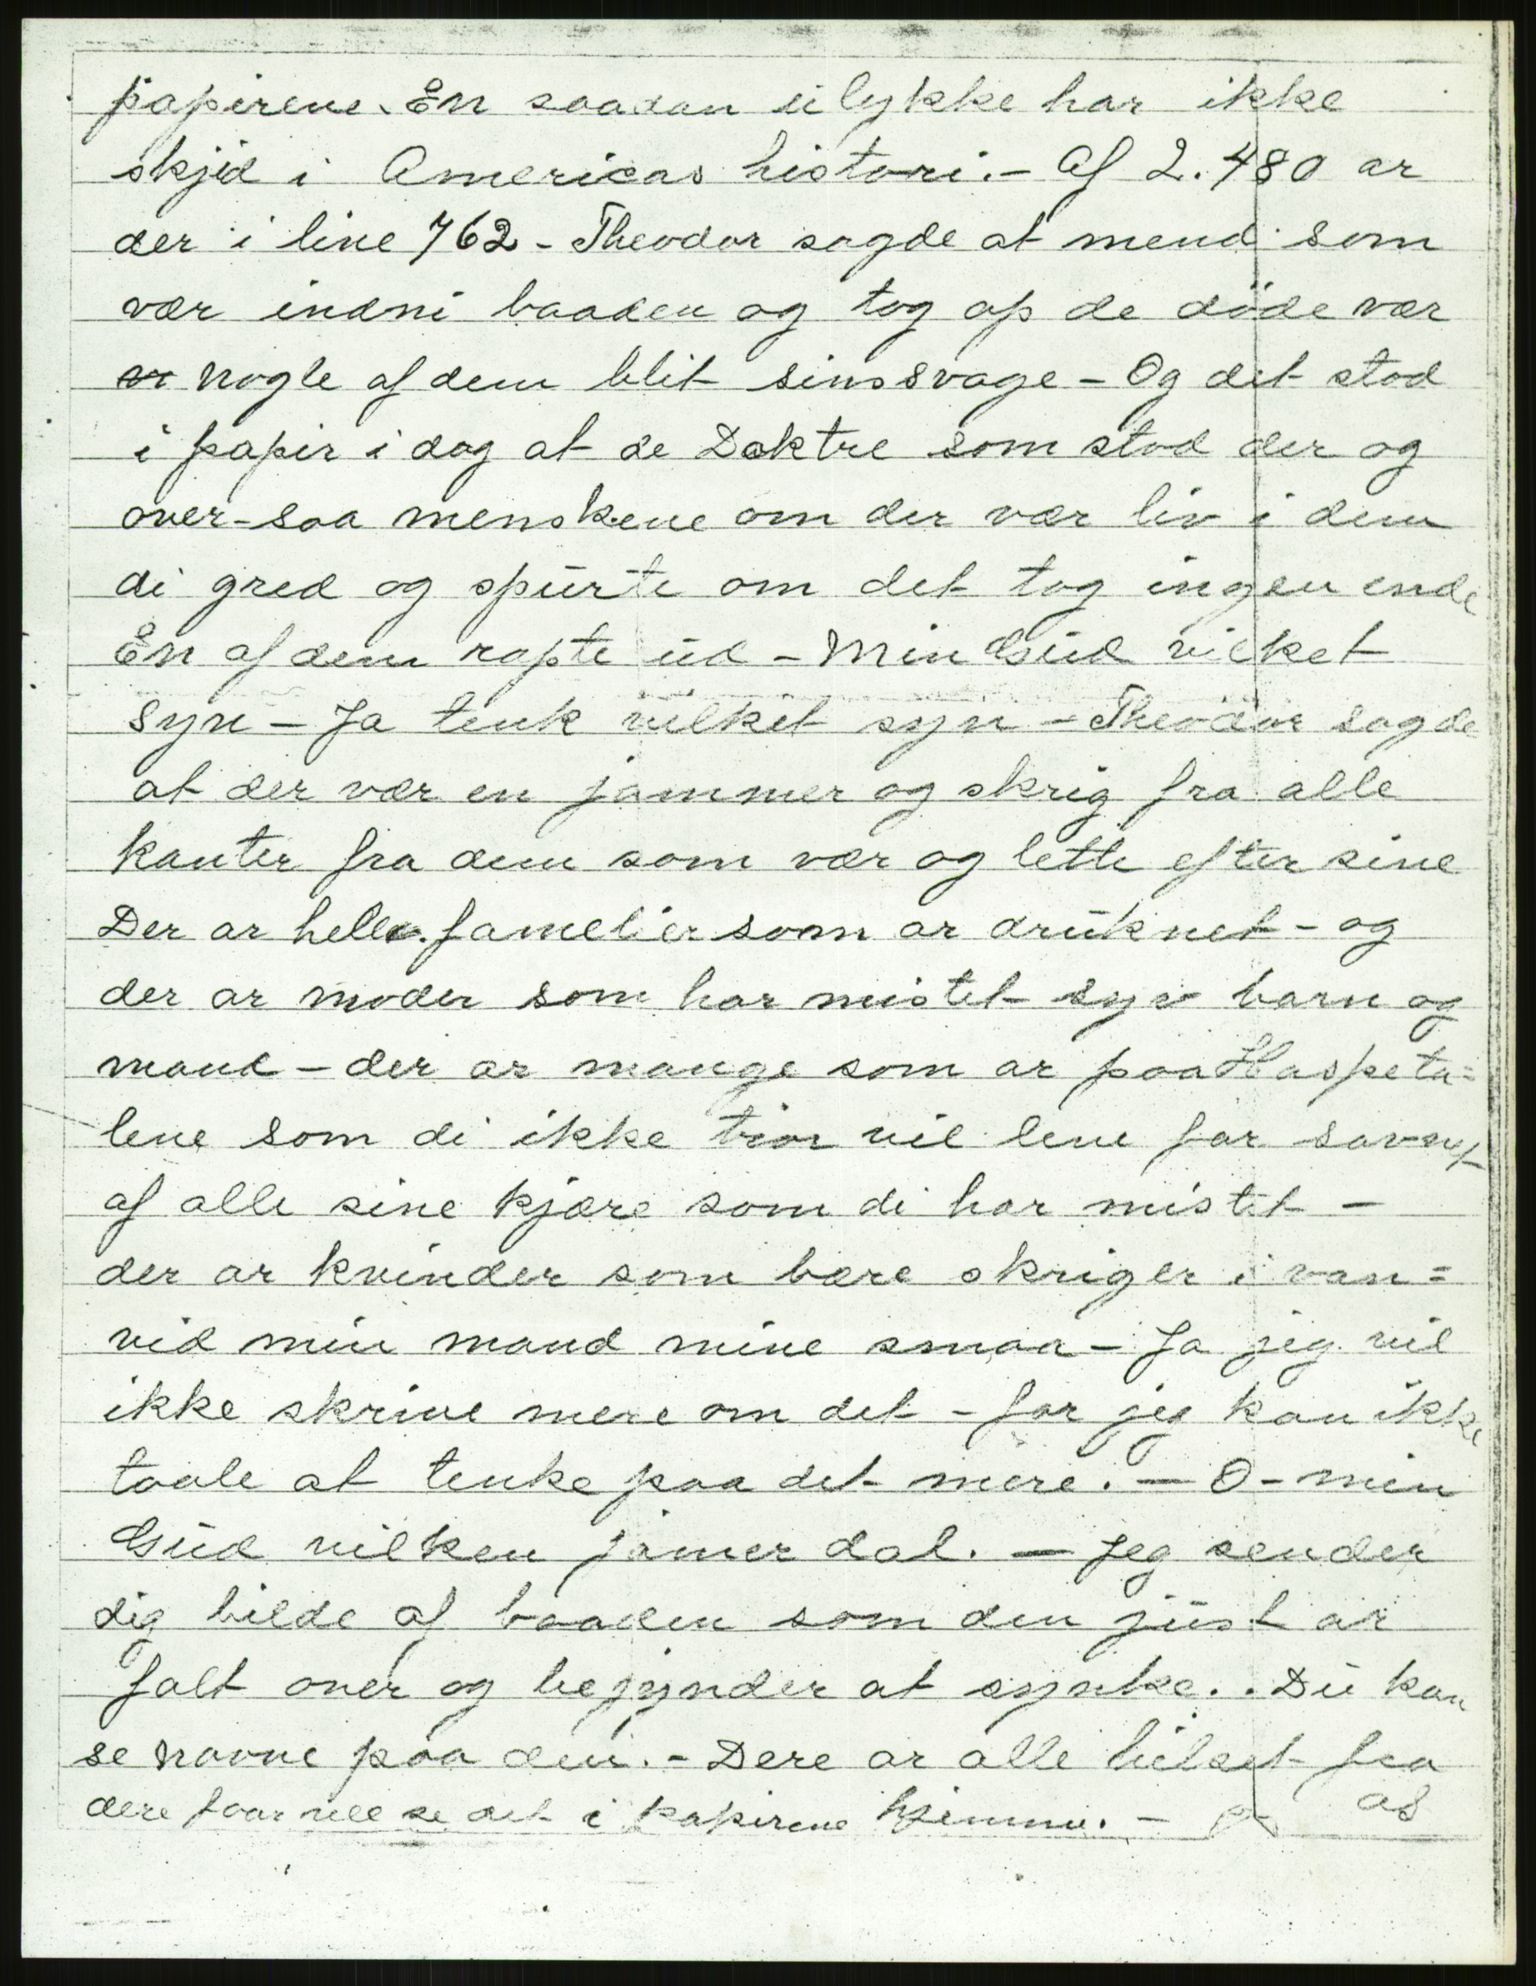 papirene. En saadan ulykke har ikke
skjed i Americas histori. - Af 2.480 ar
der i live 762 - Theodor sagde at mend som
vær indni baaden og tog op de døde vær
nogle af dem blit sinssvage - Og det stod
i papir i dag at de Doktre som stod der og
over-saa menskene om der vær liv i dem
di gred og spurte om det tog ingen ende
En af dem ropte ud - Min Gud vilket
syn - Ja tenk vilket syn - Theodor sagde
at der vær en jammer og skrig fra alle
kanter fra dem som vær og lette efter sine
Der ar hele famelier som ar druknet - og
der ar moder som har mistet syv barn og
mand - der ar mange som ar paa Haspeta=
lene som di ikke tror vil leve for savnet
af alle sine kjære som di har mistet -
der ar kvinder som bare skriger i van=
vid min mand mine smaa - Ja jeg vil
ikke skrive mere om det - for jeg kan ikke
taale at tenke paa det mere. - O - min
Gud vilken jamer dal. - Jeg sender
dig bilde af baaden som den just ar
falt over og begynder at synke.. Du kan
se navne paa den. - Dere ar alle hilset fra
dere faar vell se det i papirene hjemme. - os